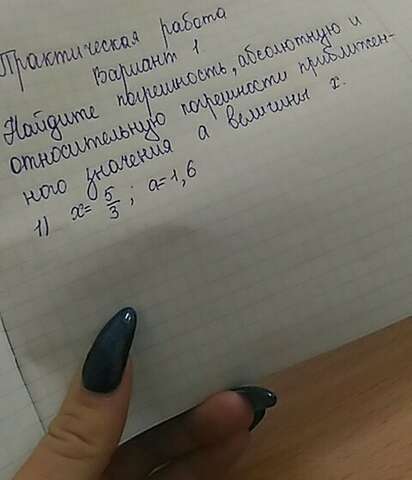 Практическая работа
Вариант 1
Найдите погрешность, абсолютную и
относительную погрешности приближен-
ного значения а величины х.
1) x = 5/3 ; a = 1,6